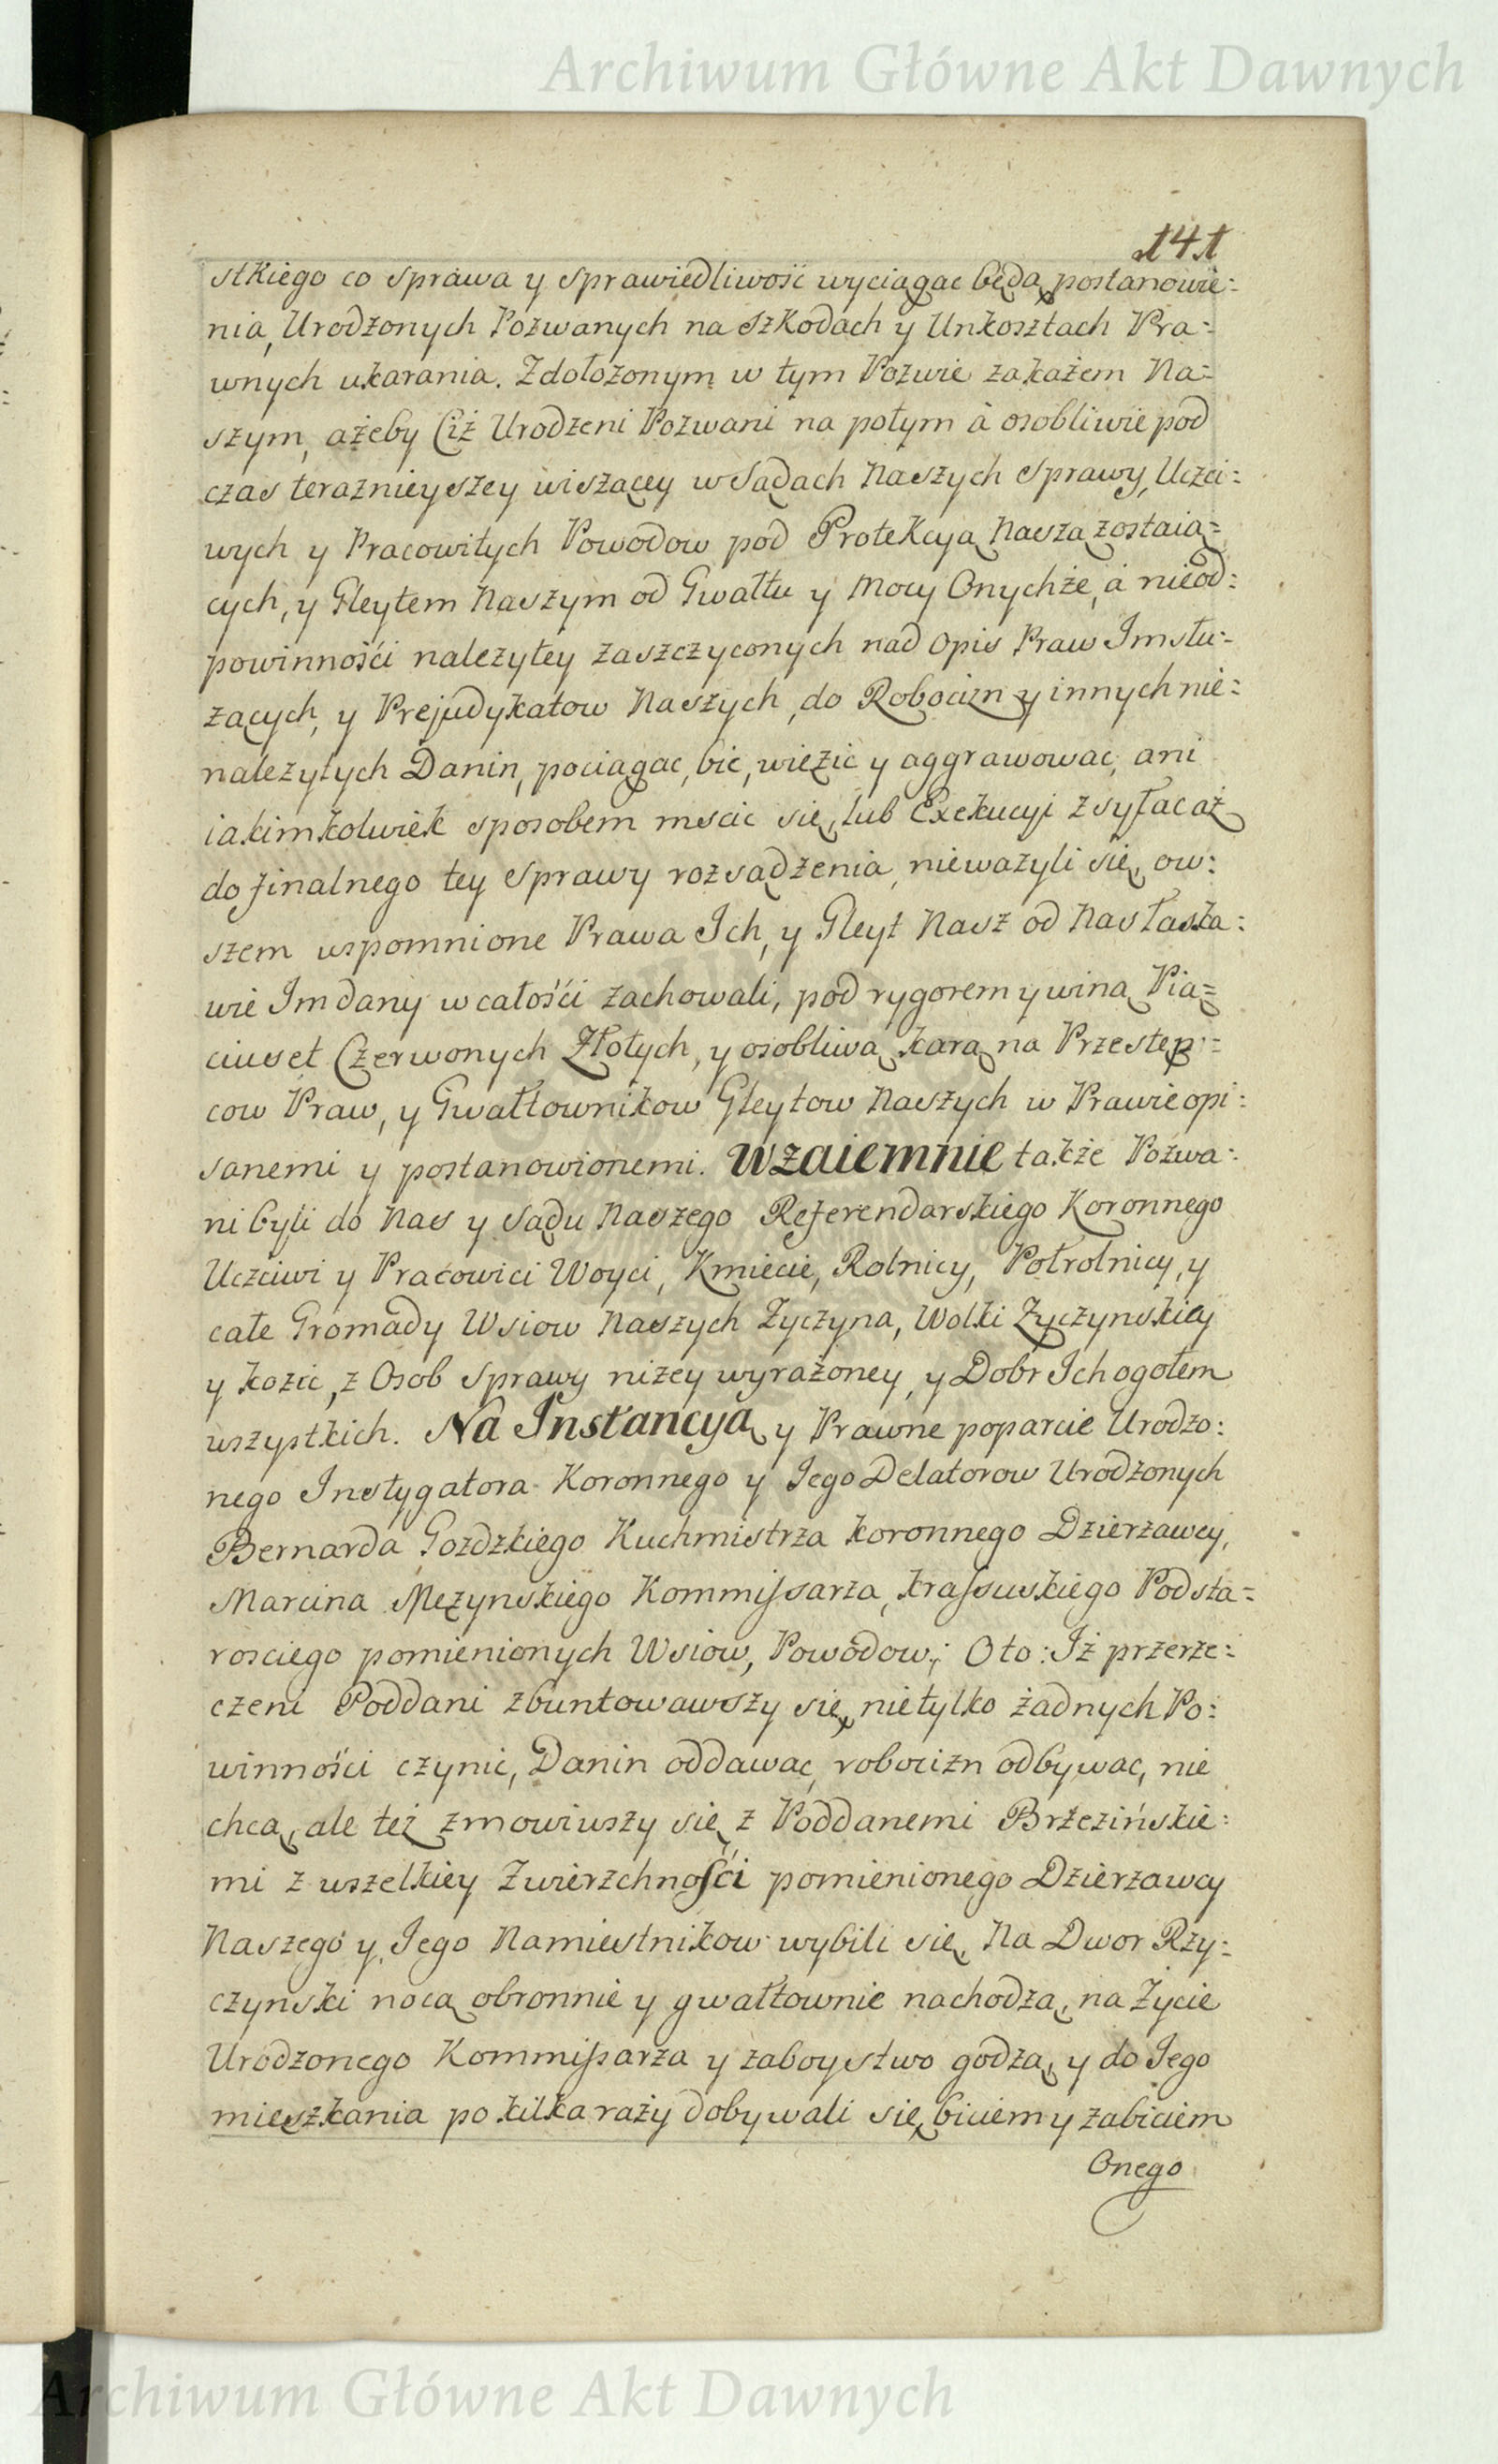 Archiwum Główne Akt Dawnych
141
stkiego co sprawa y sprawiedliwość wyciągac będą, postanowie:
nia, Urodzonych Pozwanych na szkodach y Unkosztach Pra:
wnych ukarania. Zdołożonym w tym Pozwie zakażem Na:
szym, ażeby Ciż Urodzeni Pozwani na potym à osobliwie pod
czas teraznieyszey wiszącey w Sądach Naszych sprawy, Uczci:
wych y Pracowitych Powodow pod Protekcyą Naszą zostaią:
cych, y Gleytem Naszym od Gwałtu y Mocy Onychże, à nieod:
powinności nalezytey zaszczyconych nad opis Praw Imsłu:
zących, y Prejudykatow Naszych, do Robocizn y innych nie:
nalezytych Danin, pociągac, bic, więzic y aggrawowac, ani
iakimkolwiek sposobem mscic się, lub Exekucyi zsyłac aż
do finalnego tey sprawy rozsądzenia, nieważyli się, ow:
szem wspomnione Prawa Ich, y Gleyt Nasz od Nas łaska:
wie Im dany w całości zachowali, pod rygorem y winą Pią:
ciuset Czerwonych Złotych, y osobliwą karą na Przestęp:
cow Praw, y Gwałtownikow Gleytow Naszych w Prawie opi:
sanemi y postanowionemi. Wzaiemnie także Pozwa:
ni byli do Nas y Sądu Naszego Referendarskiego Koronnego
Uczciwi y Pracowici Woyci, Kmiecie, Rolnicy, Połrolnicy, y
całe Gromady Wsiow Naszych Zyczyna, Wolki Zyczynskiey
y kozic, z Osob Sprawy niżey wyrażoney, y Dobr Ich ogołem
wszystkich. Na Instancyą y Prawne poparcie Urodzo:
nego Instygatora Koronnego y Jego Delatorow Urodzonych
Bernarda Gozdzkiego Kuchmistrza koronnego Dzierzawcy,
Marcina Męzynskiego Kommissarza, krassuskiego Podsta:
rosciego pomienionych Wsiow, Powodow; Oto: Iż przerze:
czeni Poddani zbuntowawszy się, nietylko żadnych Po:
winności czynic, Danin oddawac, robocizn odbywac, nie
chcą, ale też zmowiwszy się z Poddanemi Brzezińskie:
mi z wszelkiey Zwierzchności pomienionego Dzierzawcy
Naszego y Jego Namiestnikow wybili się, Na Dwor Rzy:
czynski nocą obronnie y gwałtownie nachodzą, na Zycie
Urodzonego Kommissarza y zaboystwo godzą, y do Jego
mieszkania po kilka raży dobywali się, biciem y zabiciem
Onego
Archiwum Główne Akt Dawnych